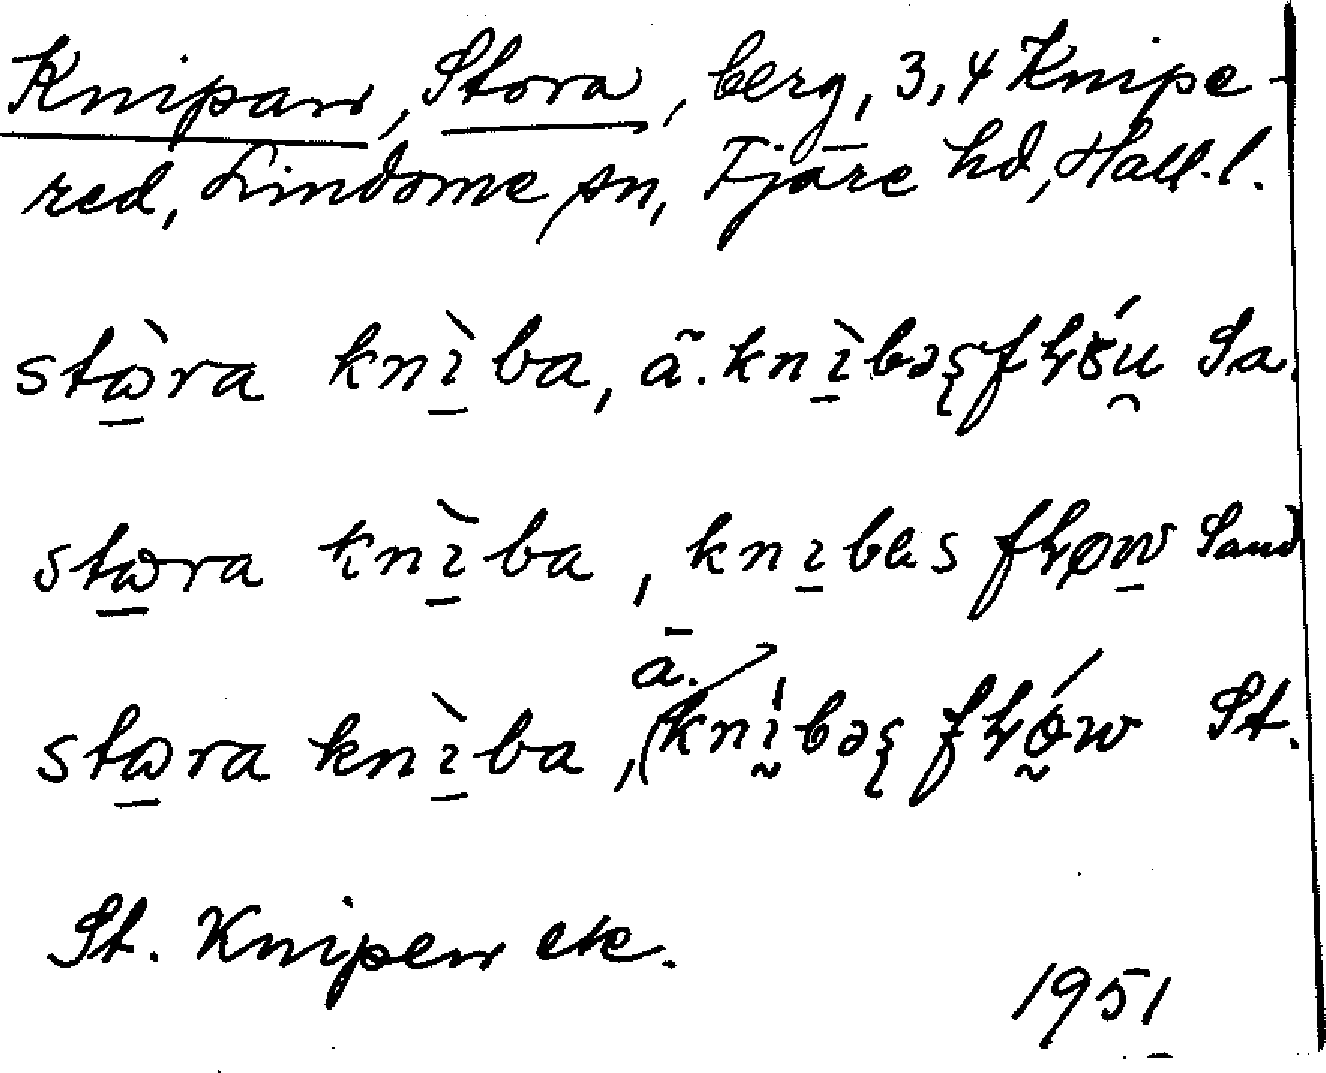 Knipan, Stora, berg, 3,4 Knipe-
red, Lindome sn, Fjäre hd, Hall.l.
stɷ̀ra knìba, ä̃. knìbəs Sa.
stɷra knìba, knıbɐs Sand
ā.
stɷra knìba, (kníbəs St.
St. Knipen ek.
1951